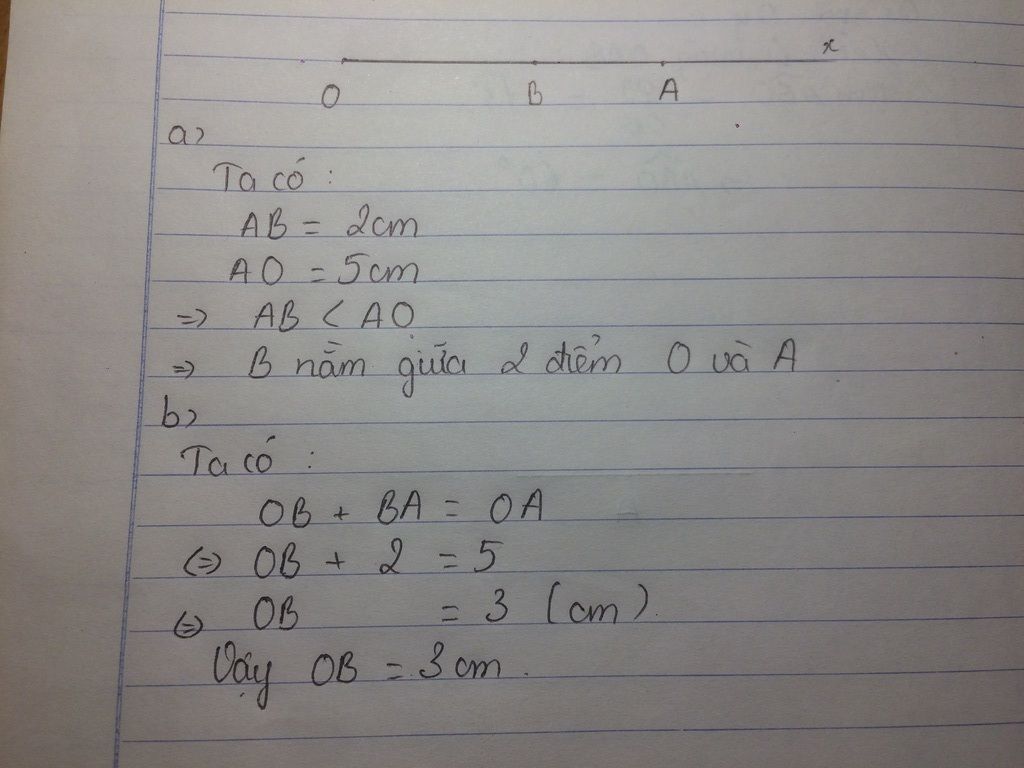 x
O B A
a)
Ta có :
AB = 2cm
AO = 5cm
=> AB < AO
=> B nằm giữa 2 điểm O và A
b)
Ta có :
OB + BA = OA
<=> OB + 2 = 5
<=> OB = 3 (cm).
Vậy OB = 3cm.